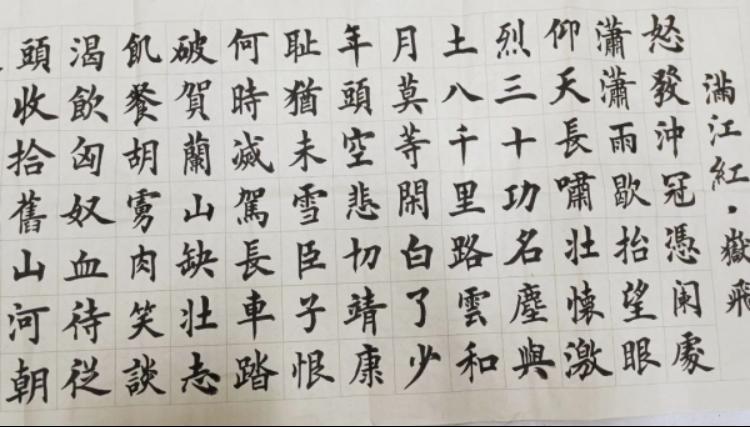 滿江紅·嶽飛
怒發沖冠憑闌處
瀟瀟雨歇抬望眼
仰天長嘯壯懷激
烈三十功名塵與
土八千里路雲和
月莫等閑白了少
年頭空悲切靖康
耻猶未雪臣子恨
何時滅駕長車踏
破賀蘭山缺壯志
飢餐胡虜肉笑談
渴飲匈奴血待從
頭收拾舊山河朝